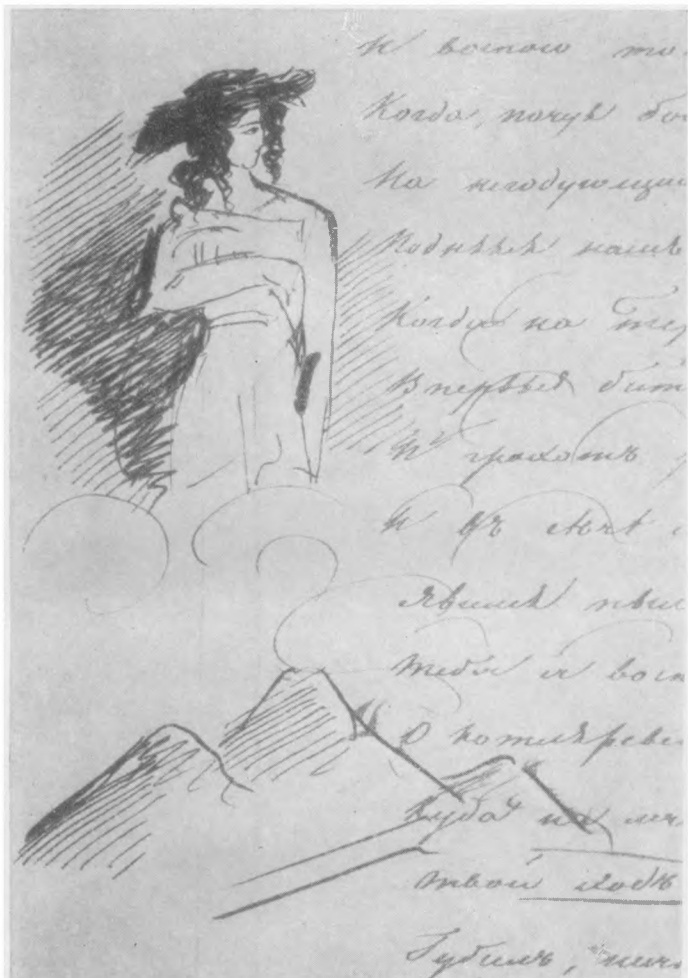 И воспою то
Когда, почуя бо
На негодующи
Поднялся нашъ
Когда на Тер
Впервыя бит
И грохотъ
И въ сечѣ
Явился пыл
Тебя я восп
О Котляревс
Куда ни мч
Твой ходъ
Губилъ, нич